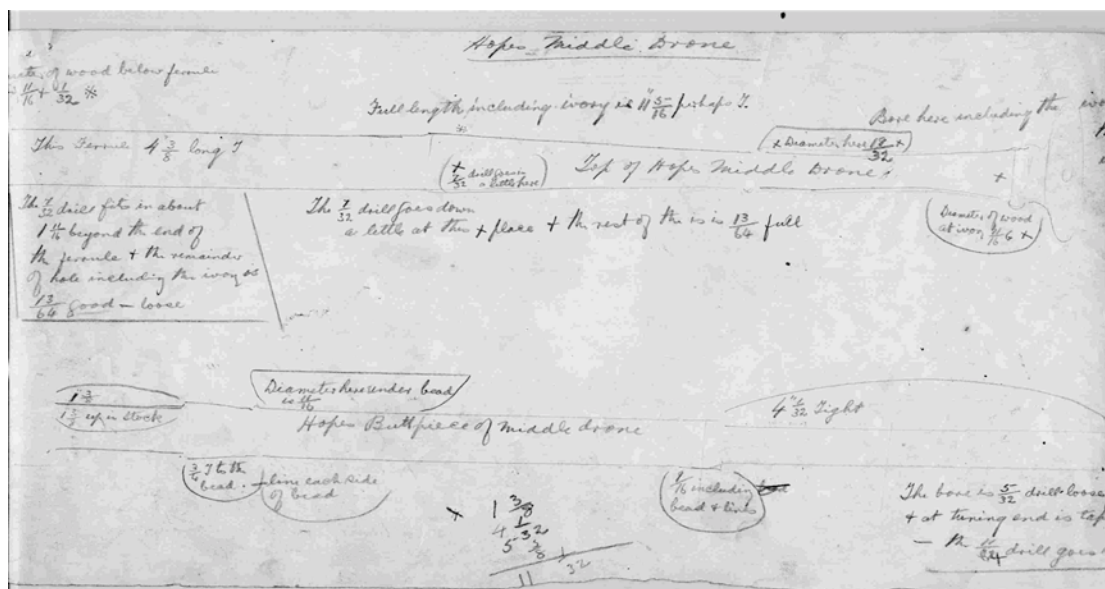 Hopes Middle Drone
of wood below ferrule
11/16 + 1/32 *
Full length including ivory is 11" 5/16 perhaps T.
Bore here including the
This Ferrule 4 3/8 long T
x Diameter here 12/32 x
x 7/32 drill goes in a little here
Top of Hopes Middle Drone
x
The 7/32 drill fits in about
1 11/16 beyond the end of
the ferrule + the remainder
of hole including the ivory is
13/64 good – loose
The 7/32 drill goes down
a little at this x place + the rest of the is is 13/64 full
Diameter of wood
at ivory
1" 3/8
1 3/8 up in stock
Diameter here under bead
is 11/16
Hopes Buttpiece of middle drone
4" 1/32 Tight
3/4 T to the
bead.
line each side
of bead
9/16 includin
bead + lines
x 1 3/8
4 1/32
5
11 1/32
The bore is 5/32 drill loose
+ at tuning end is
– the 11/64 drill goes